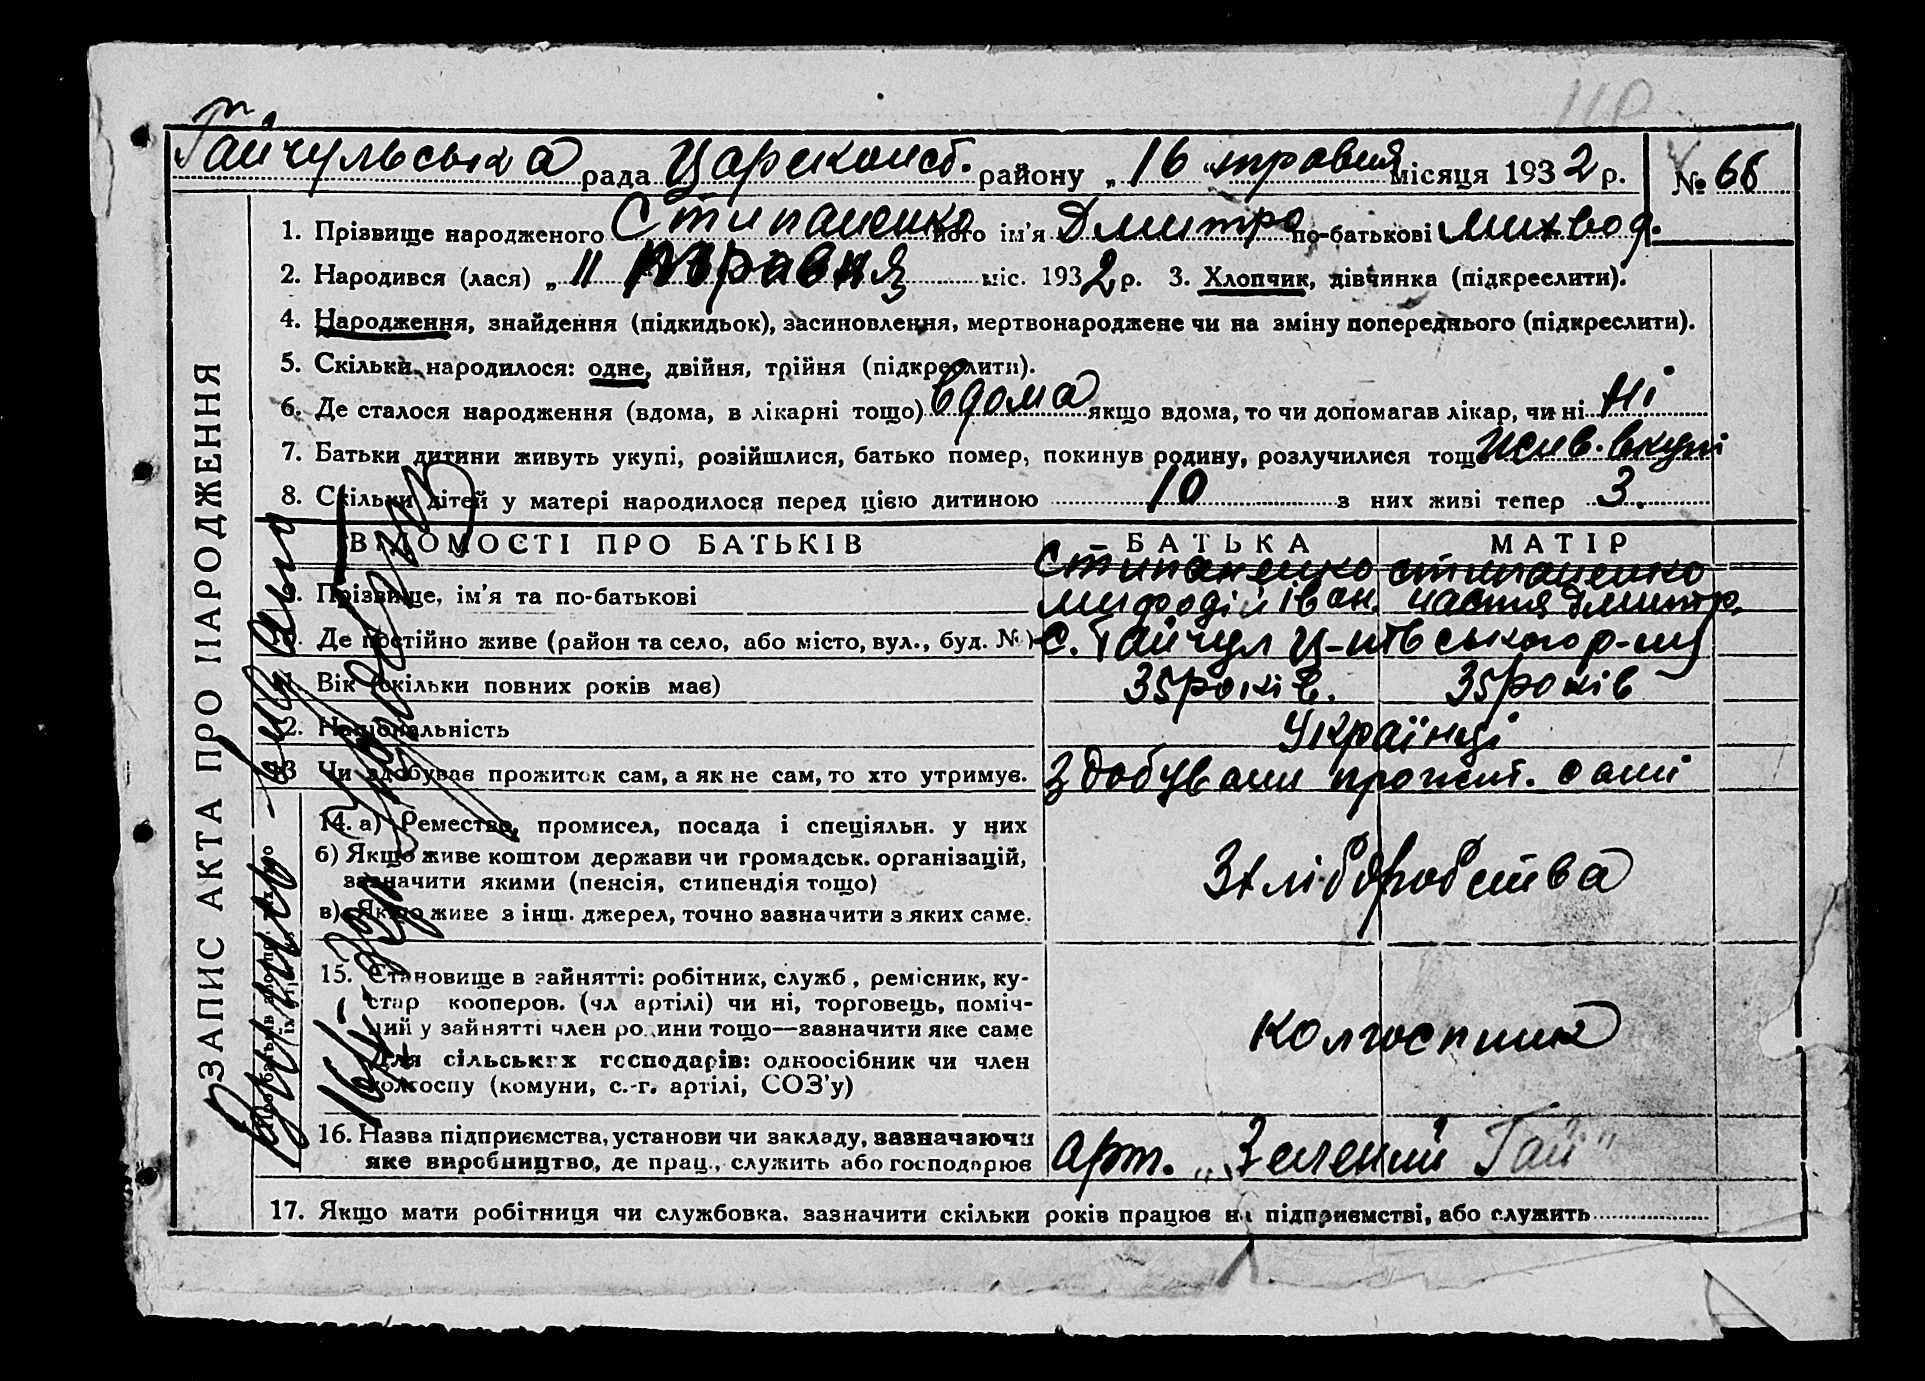 Гайчульська рада Цареконст. району „ 16 “ травня місяця 1932 р. № 68
1. Прізвище народженого Стипаненко його ім’я Дмитро по-батькові Михвод.
2. Народився (лася) „ 11 травня міс. 1932 р. 3. Хлопчик, дівчинка (підкреслити).
4. Народження, знайдення (підкидьок), засиновлення, мертвонароджене чи на зміну попереднього (підкреслити).
5. Скільки народилося: одне, двійня, трійня (підкреслити).
6. Де сталося народження (вдома, в лікарні тощо) вдома якщо вдома, то чи допомагав лікар, чи ні Ні
7. Батьки дитини живуть укупі, розійшлися, батько помер, покинув родину, розлучилися тощо жив. вкупі
8. Скільки дітей у матері народилося перед цією дитиною 10 з них живі тепер 3.
ЗАПИС АКТА ПРО НАРОДЖЕННЯ
ВІДОМОСТІ ПРО БАТЬКІВ БАТЬКА МАТІР
Стипаненко стипаненко
Прізвище, ім’я та по-батькові Мифодій Іван. Настя Дмитр.
Де постійно живе (район та село, або місто, вул., буд. №) с. Гайчул Ц-нтвського р-ну
Вік (скільки повних років має) 35 років. 35 років
12. Національність Українці
13 Чи здобуває прожиток сам, а як не сам, то хто утримує. Здобували прожит. самі
14. а) Ремество, промисел, посада і спеціяльн. у них
б) Якщо живе коштом держави чи громадськ. організацій,
зазначити якими (пенсія, стипендія тощо) З хліборобства
в) Якщо живе з інш. джерел, точно зазначити з яких саме.
15. Становище в зайнятті: робітник, служб, ремісник, ку-
стар кооперов. (чл артілі) чи ні, торговець, поміч-
ний у зайнятті член родини тощо—зазначити яке саме Колгоспник
Для сільських господарів: одноосібник чи член
колгоспу (комуни, с.-г. артілі, СОЗ’у)
16. Назва підприємства, установи чи закладу, зазначаючи
яке виробництво, де прац., служить або господарює арт. „Зелений Гай“
17. Якщо мати робітниця чи службовка, зазначити скільки років працює на підприємстві, або служить